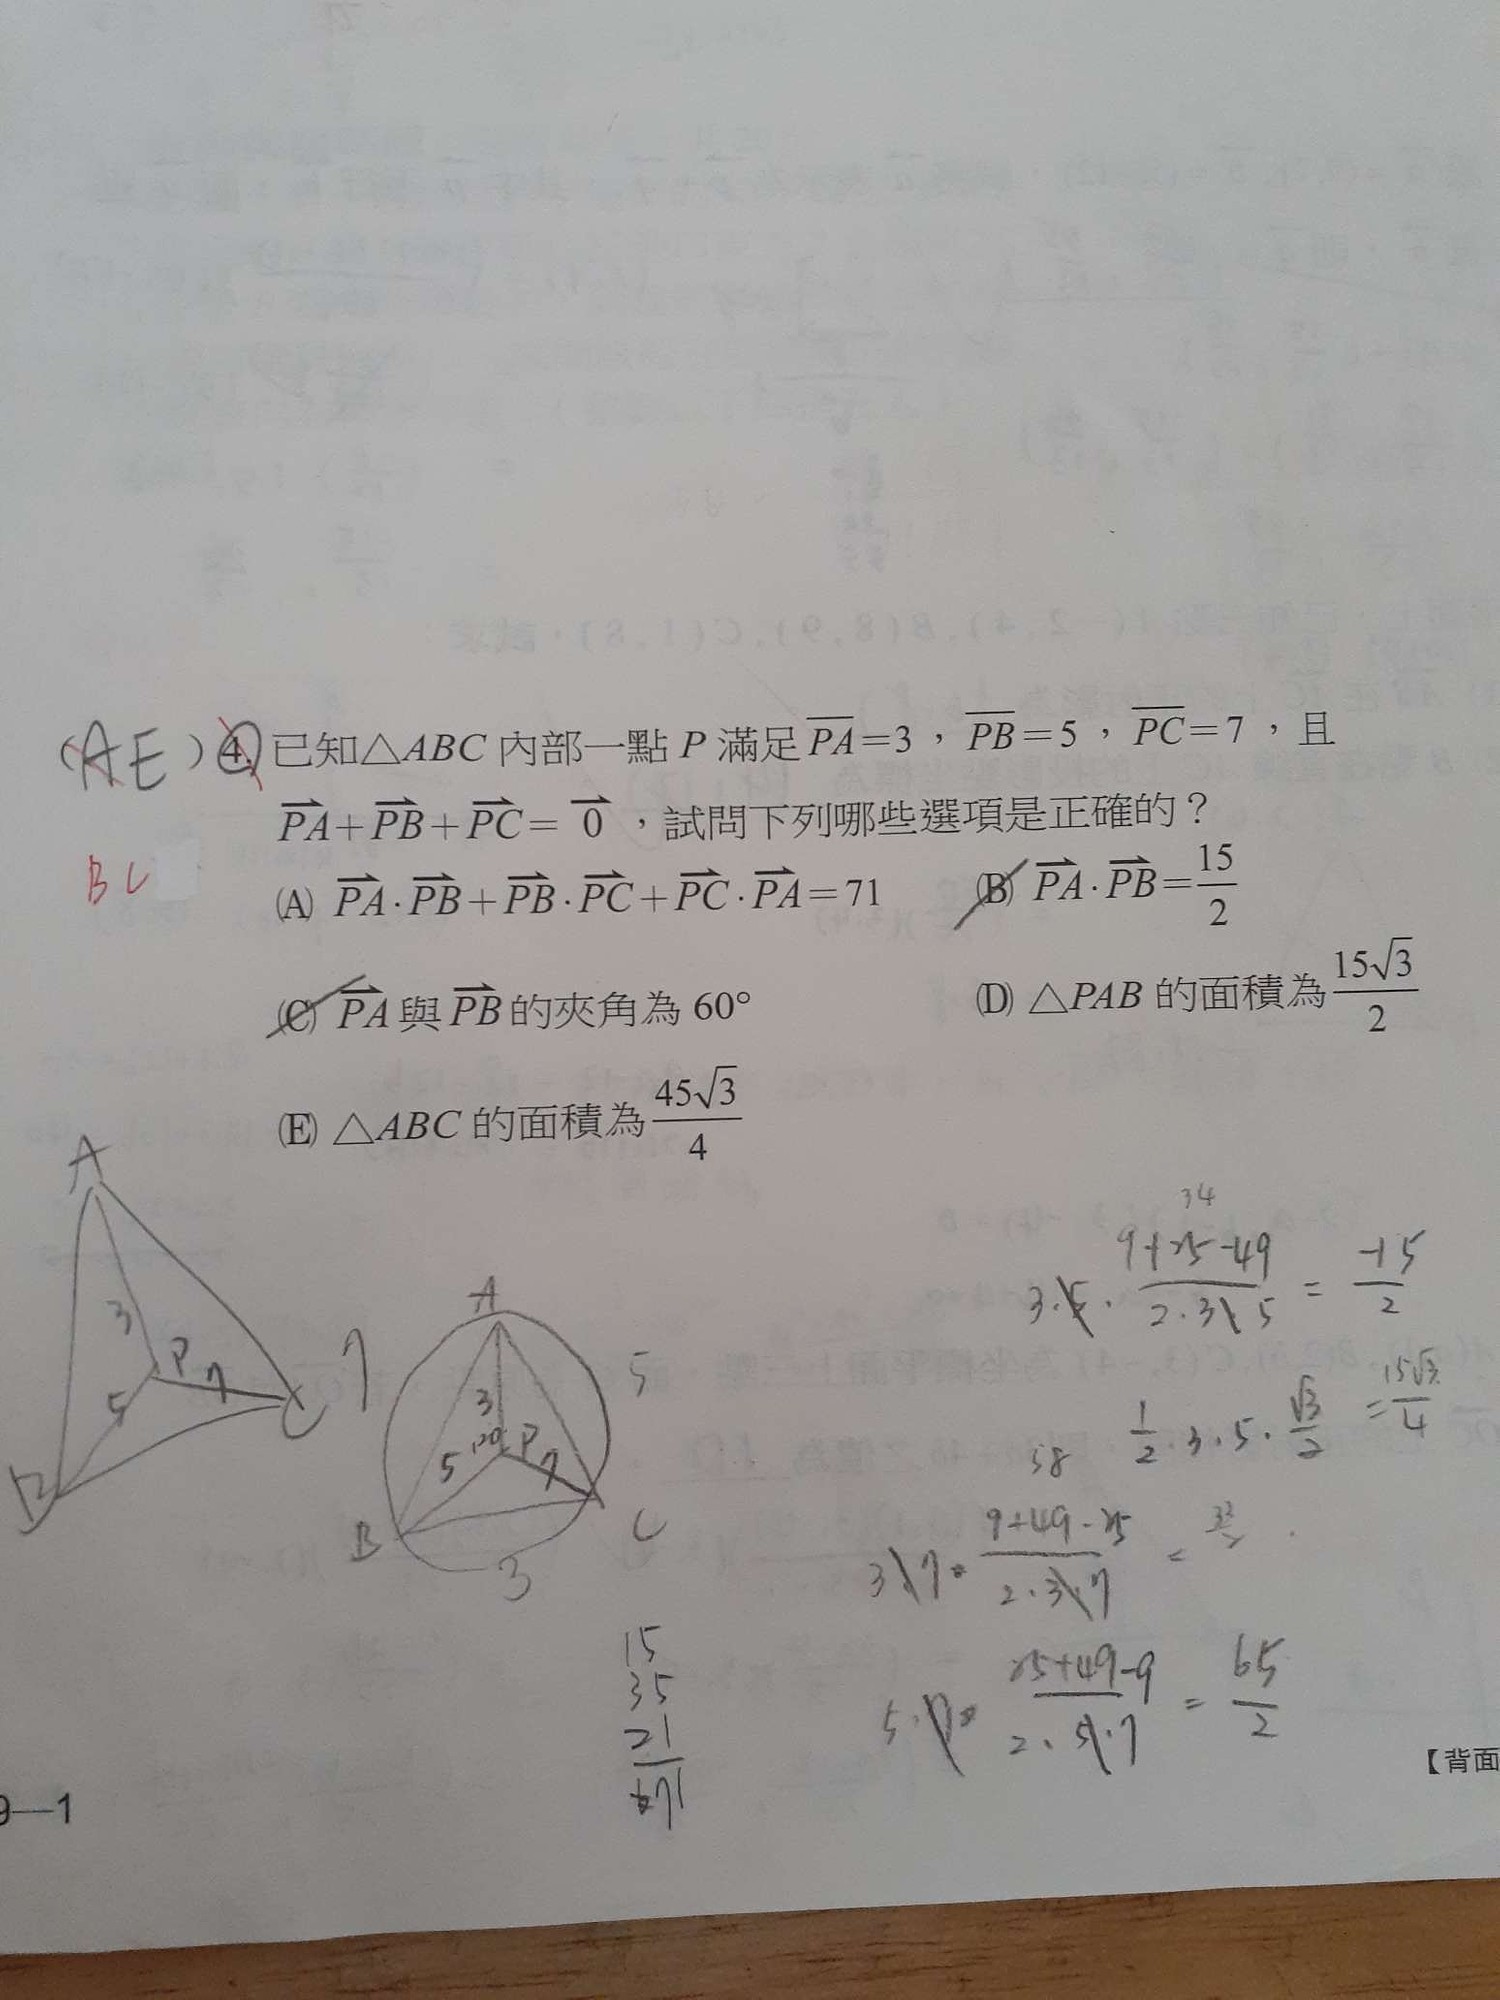 (AE) 4. 已知△ABC 內部一點 P 滿足 \overline{PA}=3，\overline{PB}=5，\overline{PC}=7，且
\overrightarrow{PA}+\overrightarrow{PB}+\overrightarrow{PC}=\overrightarrow{0}，試問下列哪些選項是正確的？
BC
(A) \overrightarrow{PA}·\overrightarrow{PB}+\overrightarrow{PB}·\overrightarrow{PC}+\overrightarrow{PC}·\overrightarrow{PA}=71 (B) \overrightarrow{PA}·\overrightarrow{PB}=\frac{15}{2}
(C) \overrightarrow{PA}與\overrightarrow{PB}的夾角為 60° (D) △PAB 的面積為\frac{15\sqrt{3}}{2}
(E) △ABC 的面積為\frac{45\sqrt{3}}{4}
A
3
P
7
5
B
C
7
A
5
3
120
P
5
7
B
C
3
34
3·5·\frac{9+25-49}{2·3·5}=\frac{-15}{2}
\frac{1}{2}·3·5·\frac{\sqrt{3}}{2}=\frac{15\sqrt{3}}{4}
58
3·7·\frac{9+49-25}{2·3·7}=\frac{33}{2}
5·7·\frac{25+49-9}{2·5·7}=\frac{65}{2}
15
35
21
71
【背面
9—1